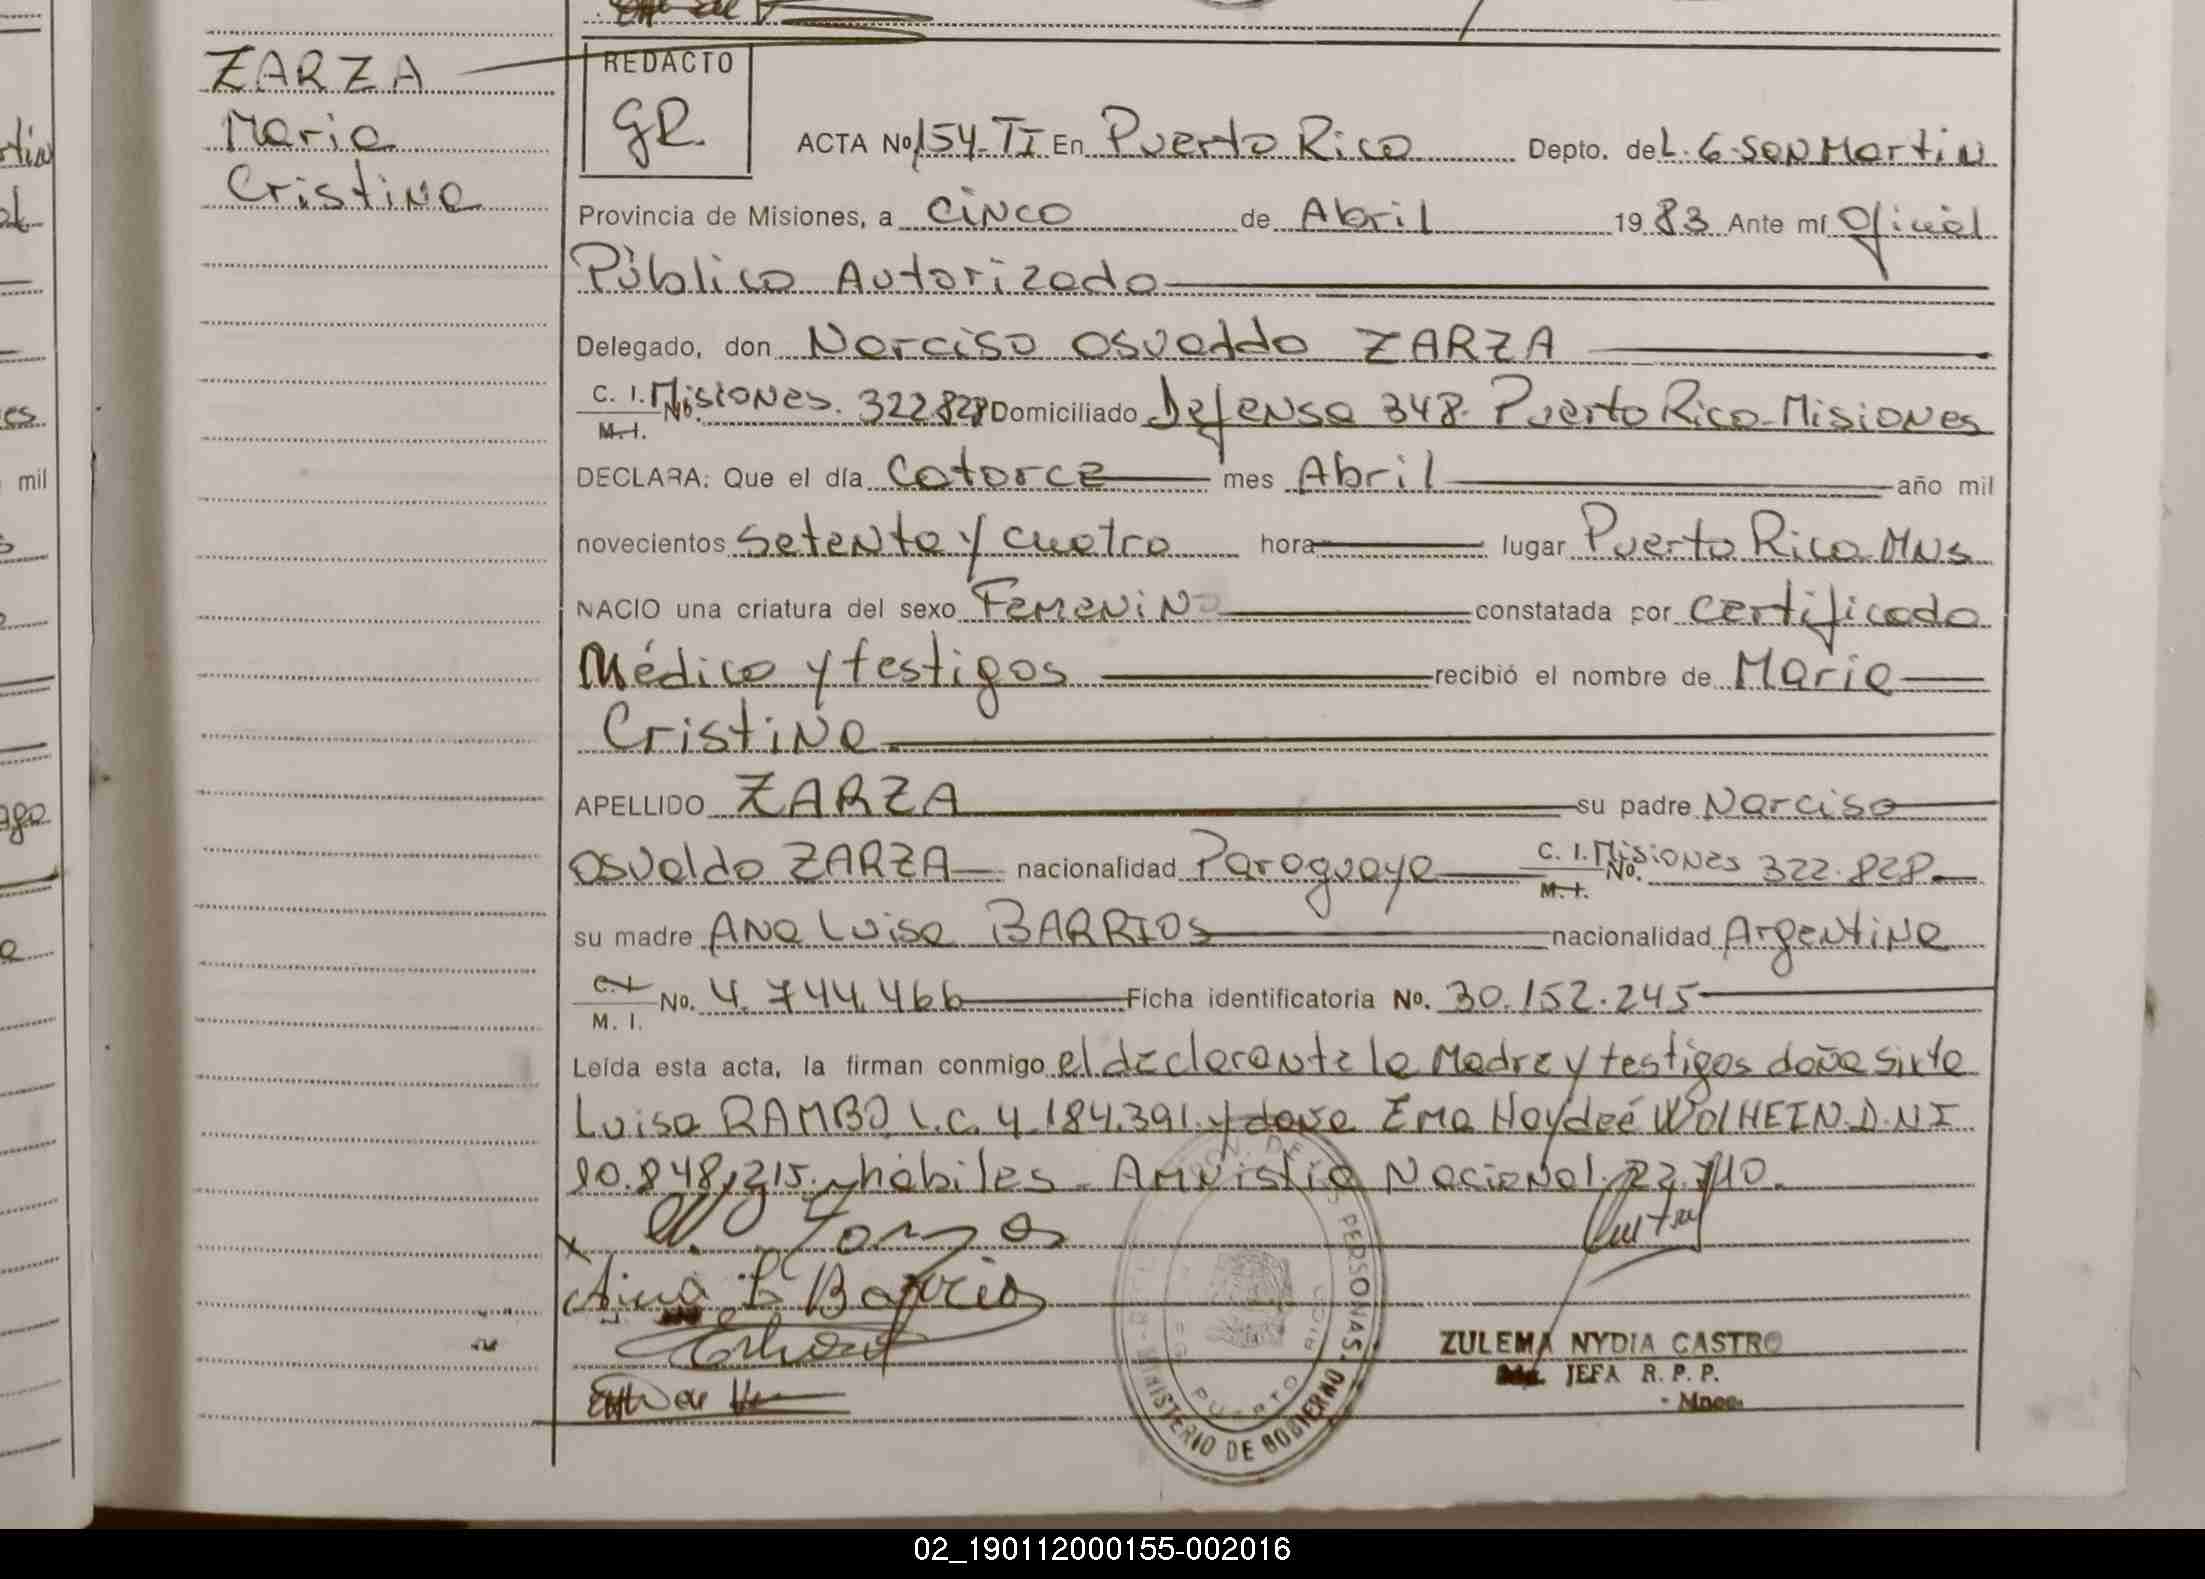 ZARZA
Maria
Cristina
REDACTO
GR.
ACTA Nº 154-TI En Puerto Rico Depto. de L.G. San Martin
Provincia de Misiones, a cinco de Abril 1983 Ante mí Oficial
Público Autorizado
Delegado, don Narciso Osvaldo ZARZA
C. I. Misiones. 322.828 Domiciliado Defensa 348. Puerto Rico-Misiones
M. I. No.
DECLARA: Que el día Catorce mes Abril año mil
novecientos setenta y cuatro hora lugar Puerto Rico Mns
NACIO una criatura del sexo Femenino constatada por certificado
Médico y testigos recibió el nombre de Maria
Cristina
APELLIDO ZARZA su padre Narciso
Osvaldo ZARZA nacionalidad Paraguaya C. I. Misiones 322.828
M. I. No.
su madre Ana Luisa BARRIOS nacionalidad Argentina
C. I.
M. I. No. 4.744.466 Ficha identificatoria No. 30.152.245
Leída esta acta, la firman conmigo el declarante la Madre y testigos doña Sirla
Luisa RAMBO L.C. 4.184.391 y doña Ema Haydeé WOLHEIN.D.N.I
10.848.215. hábiles. Amnistia Nacional.
Ana L Barrios
PERSONAS
MINISTERIO DE GOBIERNO
ZULEMA NYDIA CASTRO
JEFA R. P. P.
mil
02_190112000155-002016